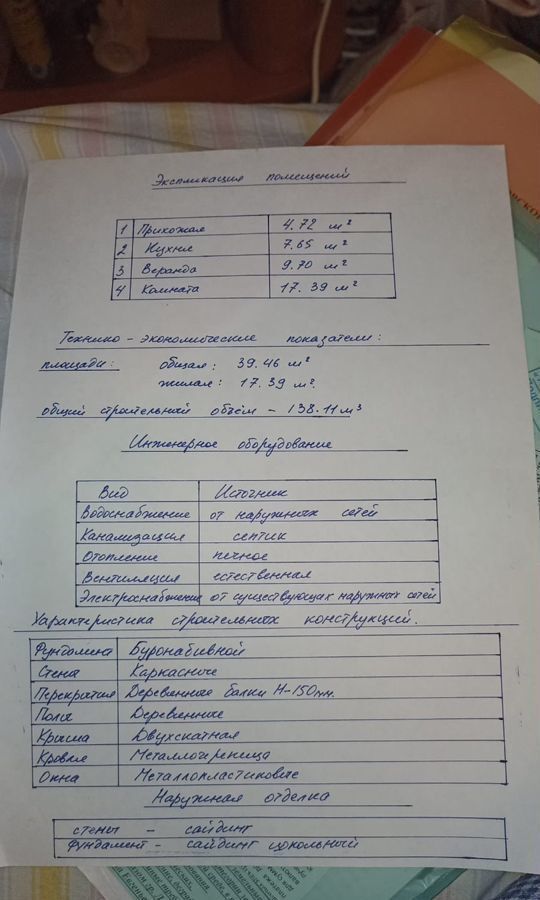 Экспликация помещений
1 Прихожая 4.72 м²
2 Кухня 7.65 м²
3 Веранда 9.70 м²
4 Комната 17.39 м²
Технико-экономические показатели:
площади: общая: 39.46 м²
жилая: 17.39 м².
общий строительный объём - 138.11 м³
Инженерное оборудование
Вид Источник
Водоснабжение от наружных сетей
Канализация септик
Отопление печное
Вентиляция естественная
Электроснабжение от существующих наружных сетей
Характеристика строительных конструкций.
Фундамент Буронабивной
Стены Каркасные
Перекрытия Деревянные балки H-150мм.
Полы Деревянные
Крыша Двухскатная
Кровля Металлочерепица
Окна Металлопластиковые
Наружная отделка
стены - сайдинг
фундамент - сайдинг цокольный